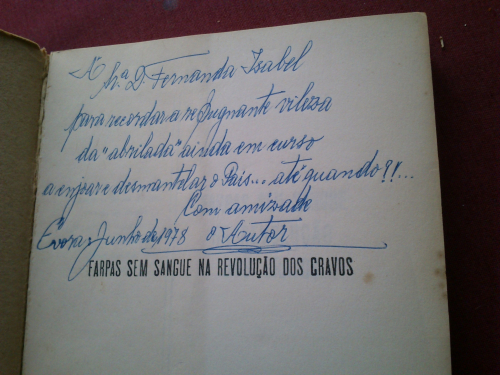 À Sr.ª D. Fernanda Isabel
para recordar a repugnante vileza
da "abrilada" ainda em curso
a enjoar e desmantelar o País... até quando?!...
Com amizade
Évora, Junho de 1978 o Autor
FARPAS SEM SANGUE NA REVOLUÇÃO DOS CRAVOS